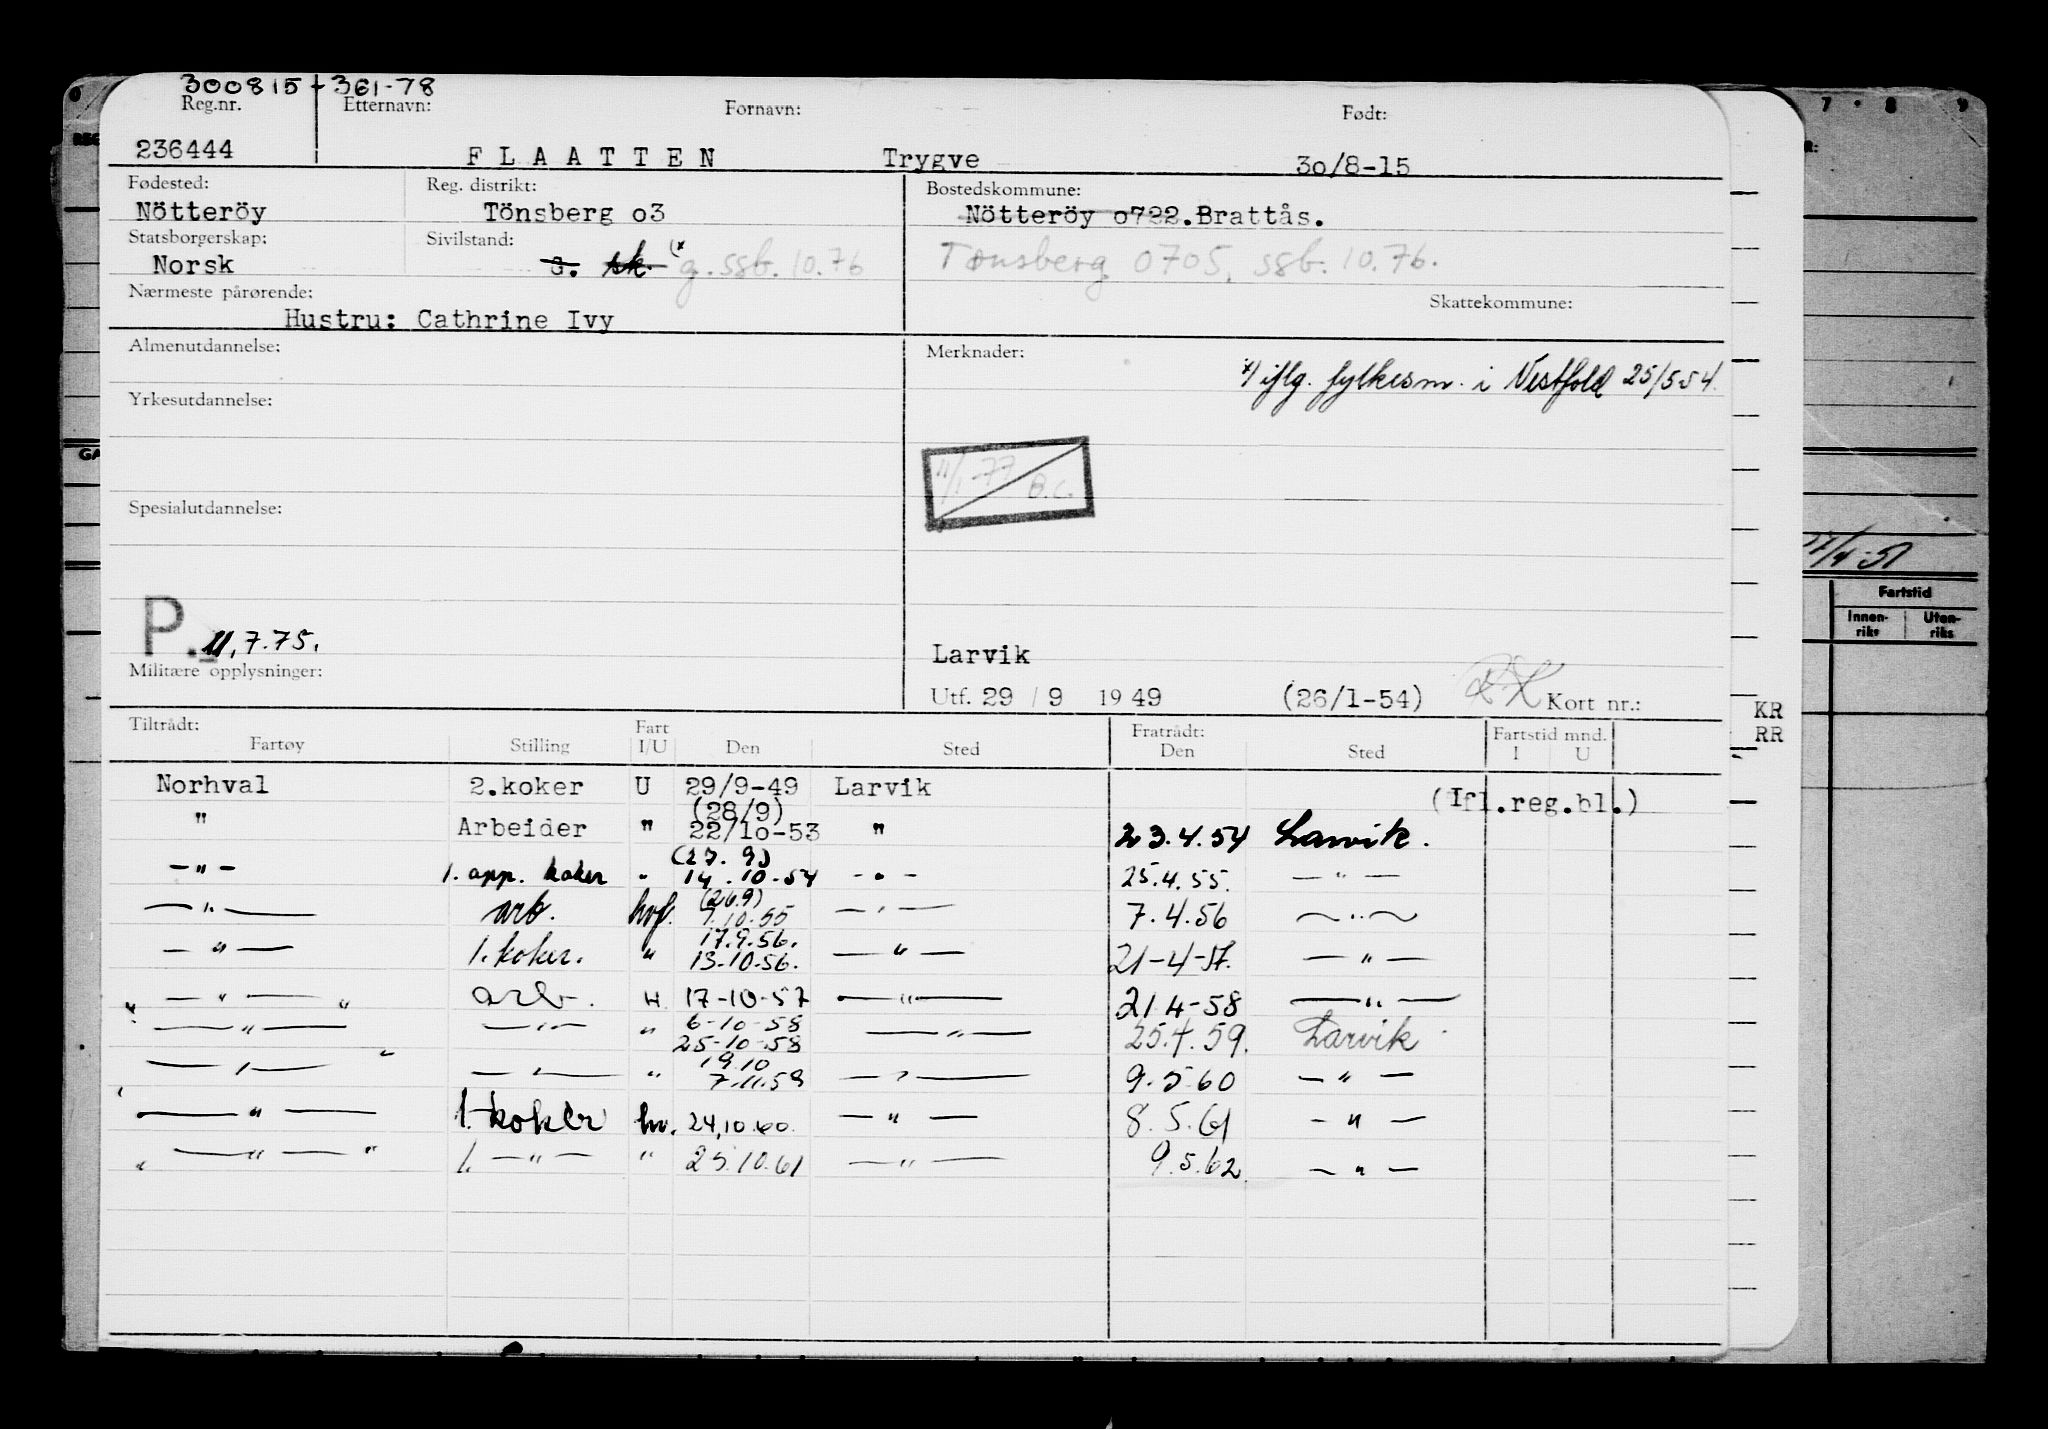 300815-361-78
Reg.nr. Etternavn: Fornavn: Født:
236444 FLAATTEN Trygve 3o/8-15
Fødested: Reg. distrikt: Bostedskommune:
Nötteröy Tönsberg o3 Nötteröy o722.Brattås.
Statsborgerskap: Sivilstand:
Norsk G. sk. (* g. ssb. 10.76 Tønsberg 0705, ssb. 10.76.
Nærmeste pårørende: Skattekommune:
Hustru: Cathrine Ivy
Almenutdannelse: Merknader:
*) iflg. fylkesm. i Vestfold 25/5 54.
Yrkesutdannelse:
11/1-77 B.C.
Spesialutdannelse:
17/4-51
Fartstid
Innen-riks Uten-riks
P. 11.7.75.
Larvik
Militære opplysninger:
Utf. 29 / 9 19 49 (26/1-54) Kort nr.:
KR
RR
Tiltrådt: Fart Fratrådt: Fartstid mnd.
Fartøy Stilling I/U Den Sted Den Sted I U
Norhval 2.koker U 29/9-49 Larvik (Ifl.reg.bl.)
(28/9)
" Arbeider " 22/1o-53 " 23.4.54 Larvik.
(27.9)
-"- 1. app. koker " 14.10-54 -"- 25.4.55. -"-
(26.9)
-"- arb. hvf. 7.10.55 -"- 7.4.56 -"-
17.9.56.
-"- 1. koker. " 13-10-56. -"- 21-4-57. -"-
" -"- " arb. H 17-10-57 -"- 21 4-58 -"-
6-10-58
-"- -"- " 25-10-58 -"- 25.4.59. Larvik
19.10
-"- -"- " 7.11.59 -"- 9.5 60 -"-
-"- 1. koker hv. 24,10.60. -"- 8.5.61 -"-
" -"- " 1. -"- " 25.10.61 -"- 9.5.62. -"-